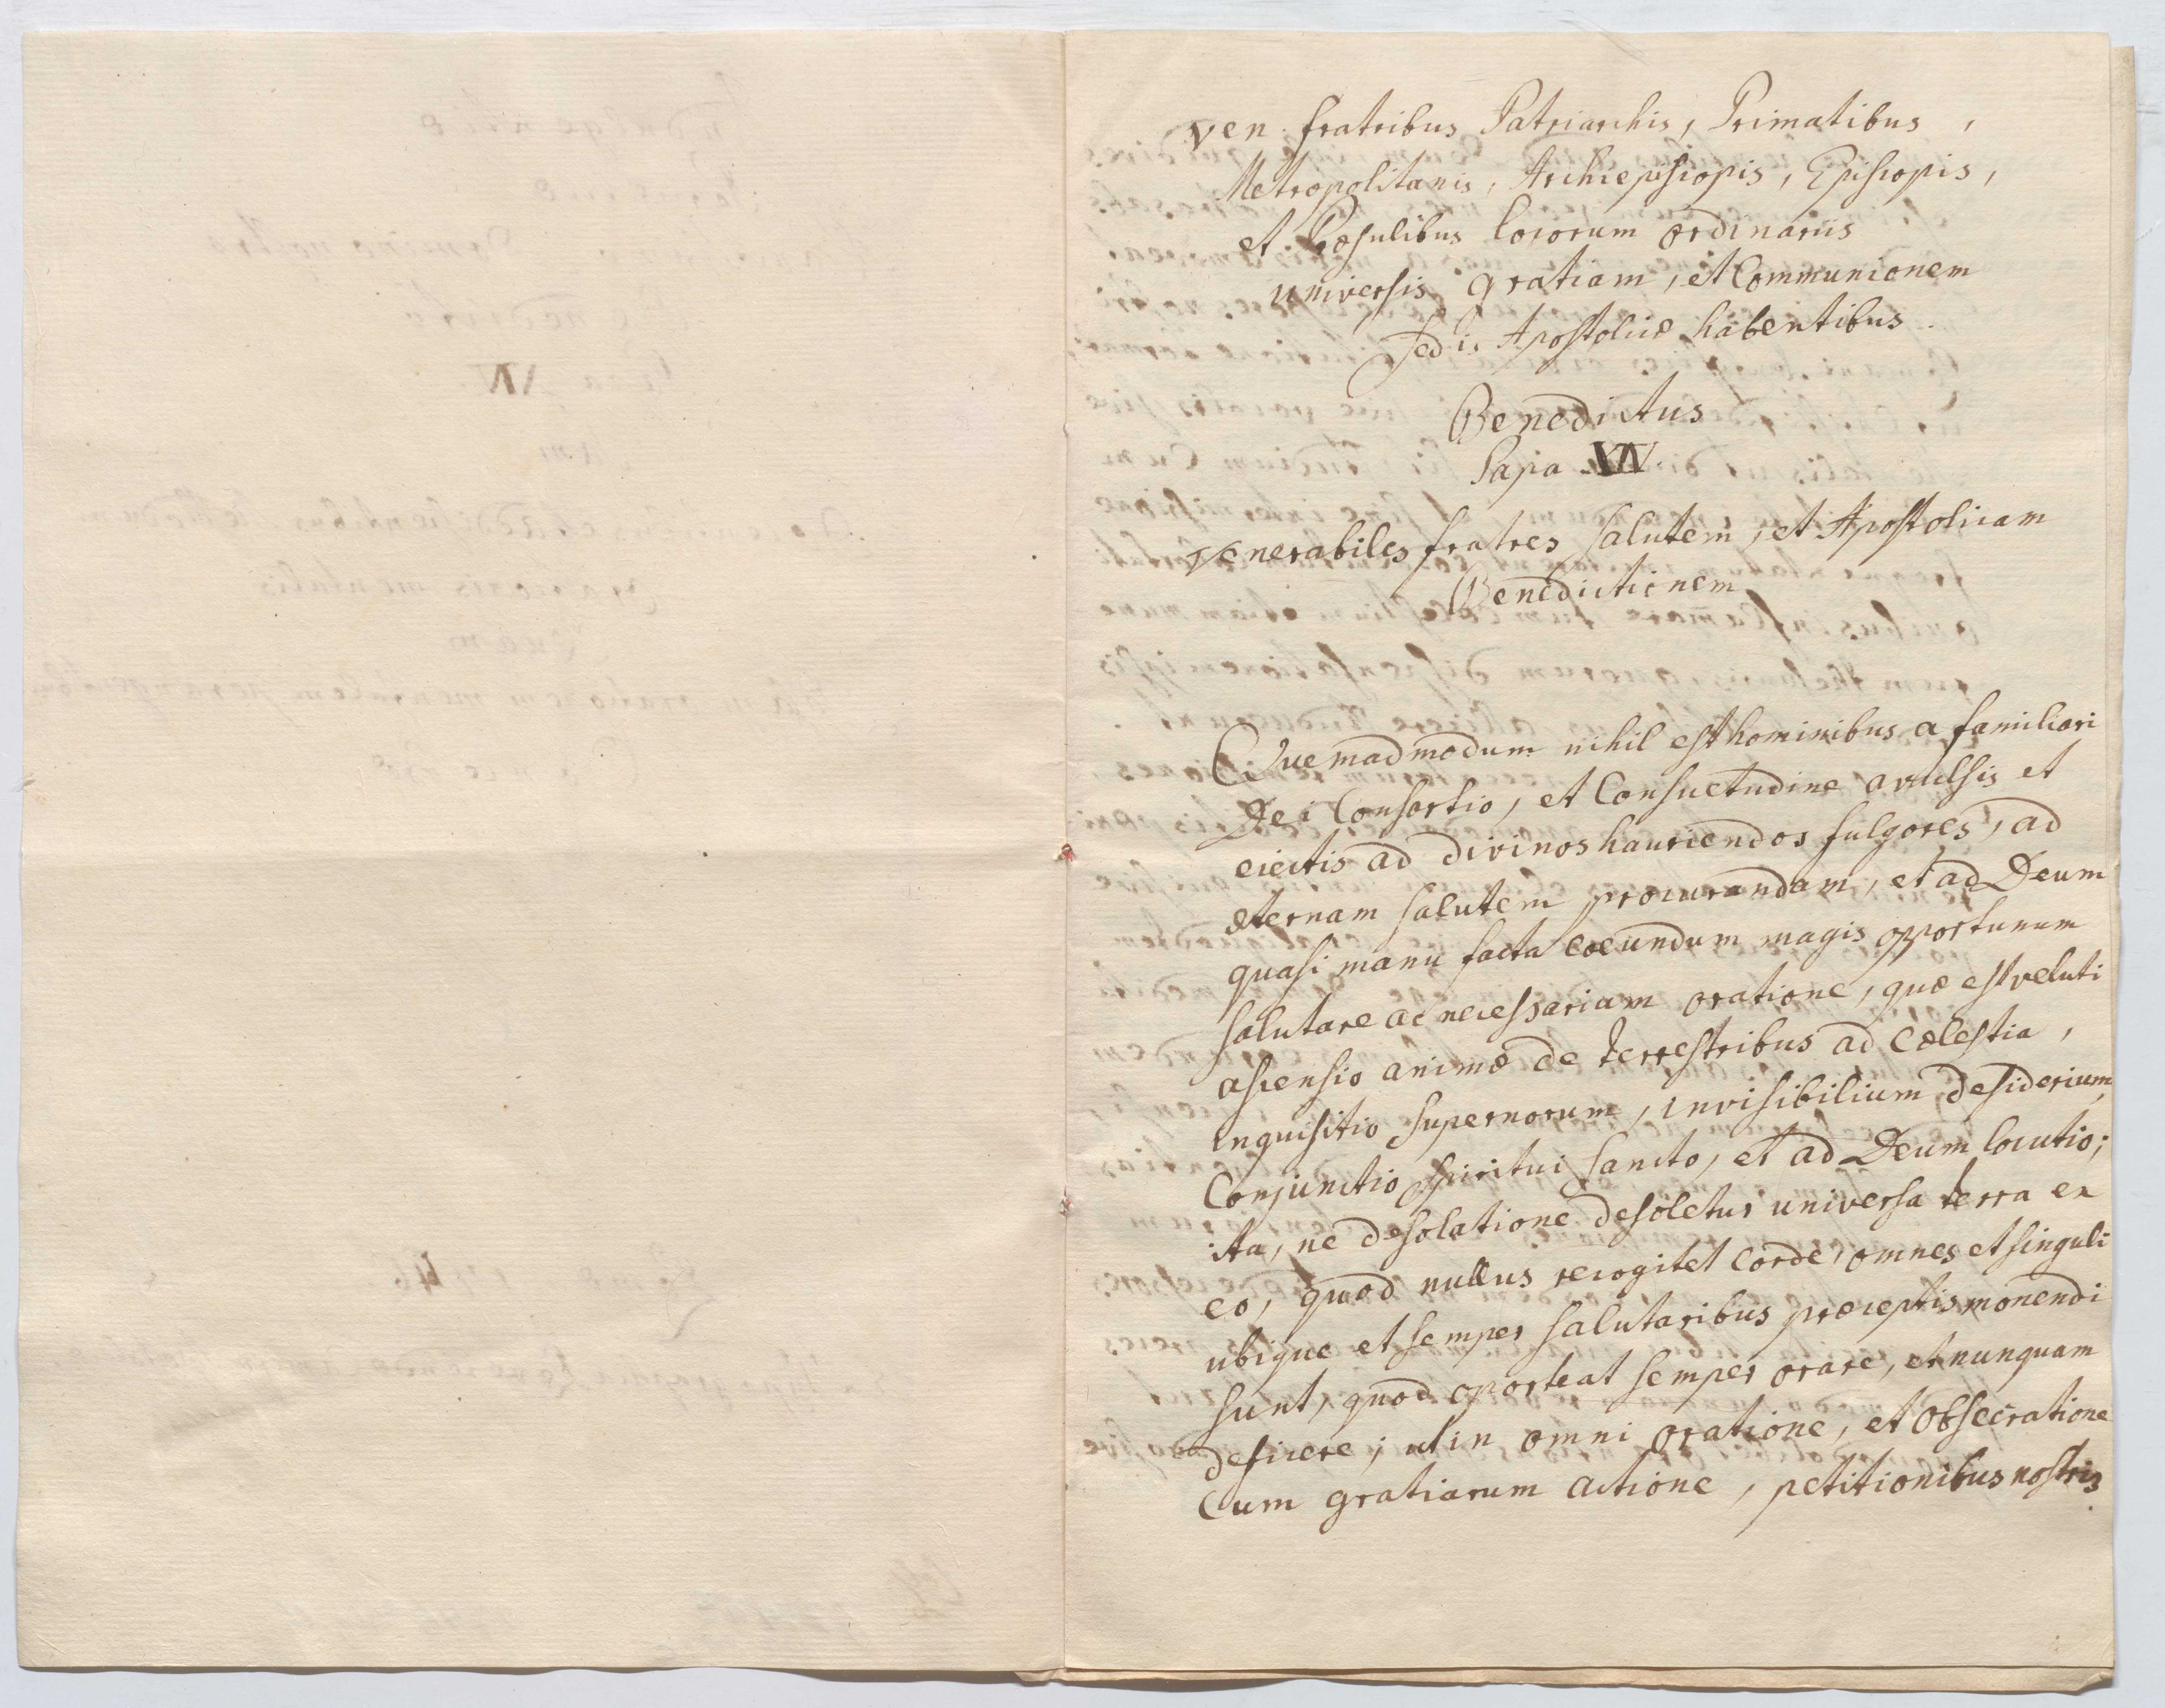 Ven. fratribus Patriarchis, Primatibus,
Metropolitanis, Archiepiscopis, Episcopis,
et Præsulibus locorum ordinariis
universis gratiam, et Communionem
Sedis Apostolicæ habentibus.
Benedictus
Papa XIV.
Venerabiles fratres salutem, et Apostolicam
Benedictionem
Quemadmodum nihil est hominibus a familiari
Dei Consortio, et Consuetudine avulsis et
eiectis ad divinos hauriendos fulgores, ad
æternam salutem procurandam, et ad Deum
quasi manu facta coeundum magis opportunum
salutare ac necessariam oratione, quæ est veluti
ascensio animæ de terrestribus ad cælestia,
inquisitio supernorum, invisibilium desiderium,
Conjunctio Spiritui Sancto, et ad Deum locutio;
ita, ne desolatione desoletur universa terra ex
eo, quod nullus recogitet corde, omnes et singuli
ubique et semper salutaribus præceptis monendi
sunt, quod oporteat semper orare, et nunquam
deficere; ut in omni oratione, et obsecratione
Cum gratiarum actione, petitionibus nostris